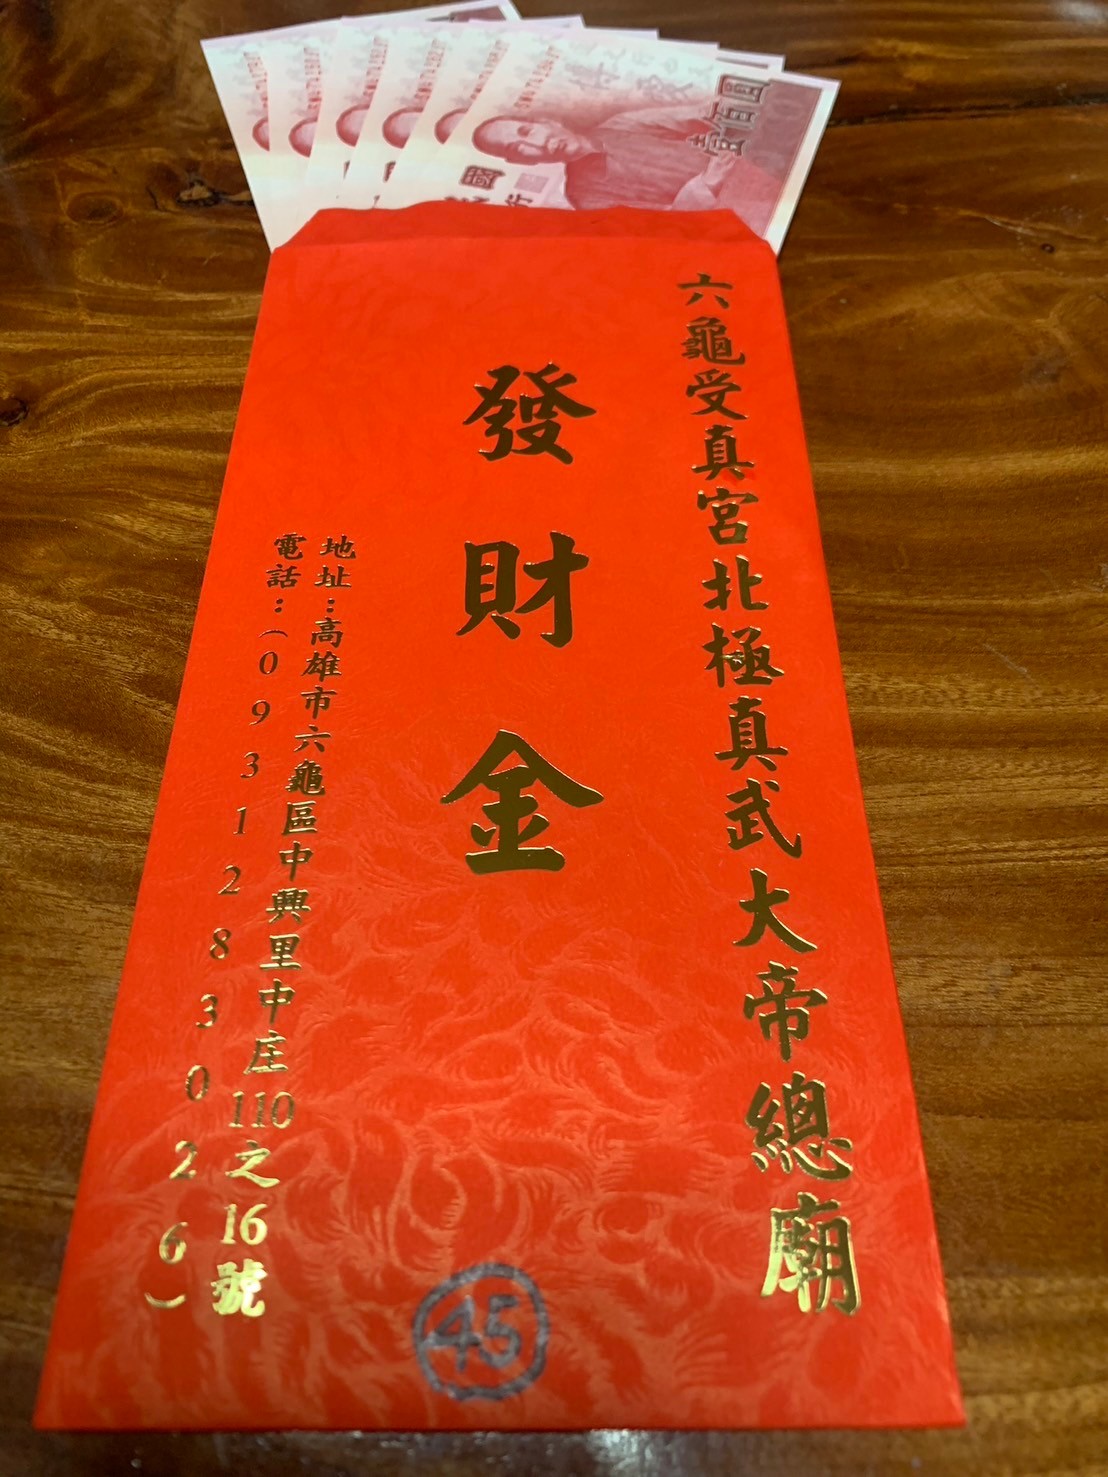 壹佰圓
六龜受真宮北極真武大帝總廟
發財金
地址：高雄市六龜區中興里中庄110之16號
電話：（0931283026）
45